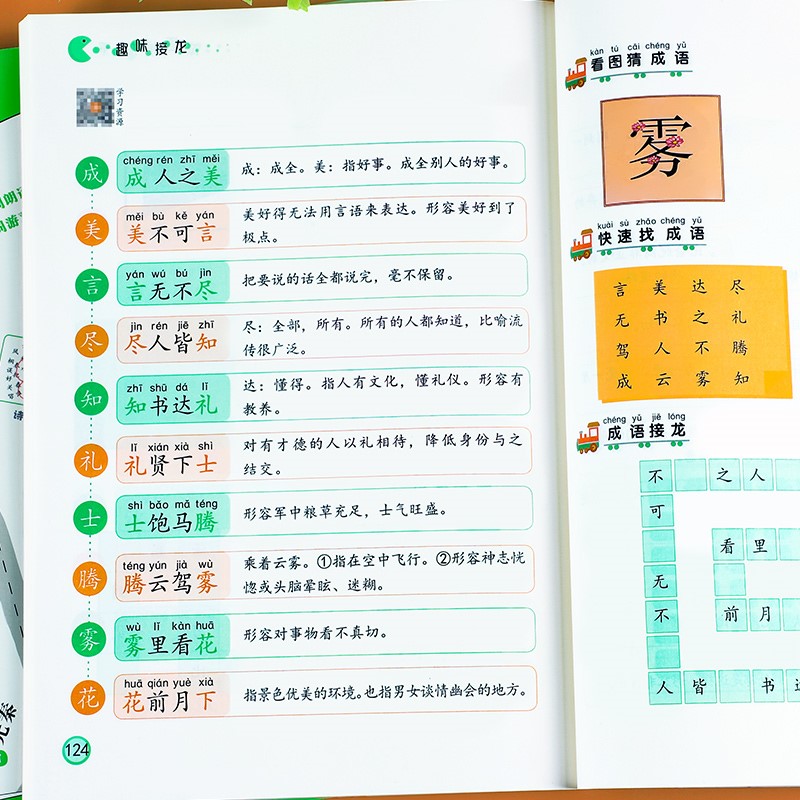 趣味接龙
学习资源
成
chéng rén zhī měi
成人之美
成：成全。美：指好事。成全别人的好事。
美
měi bù kě yán
美不可言
美好得无法用言语来表达。形容美好到了
极点。
言
yán wú bú jìn
言无不尽
把要说的话全都说完，毫不保留。
尽
jìn rén jiē zhī
尽人皆知
尽：全部，所有。所有的人都知道，比喻流
传很广泛。
知
zhī shū dá lǐ
知书达礼
达：懂得。指人有文化，懂礼仪。形容有
教养。
礼
lǐ xián xià shì
礼贤下士
对有才德的人以礼相待，降低身份与之
结交。
士
shì bǎo mǎ téng
士饱马腾
形容军中粮草充足，士气旺盛。
腾
téng yún jià wù
腾云驾雾
乘着云雾。①指在空中飞行。②形容神志恍
惚或头脑晕眩、迷糊。
雾
wù lǐ kàn huā
雾里看花
形容对事物看不真切。
花
huā qián yuè xià
花前月下
指景色优美的环境。也指男女谈情幽会的地方。
124
kàn tú cāi chéng yǔ
看图猜成语
雾
kuài sù zhǎo chéng yǔ
快速找成语
言 美 达 尽
无 书 之 礼
驾 人 不 腾
成 云 雾 知
chéng yǔ jiē lóng
成语接龙
不 之 人
可
看 里
无
不 前 月
人 皆 书 达